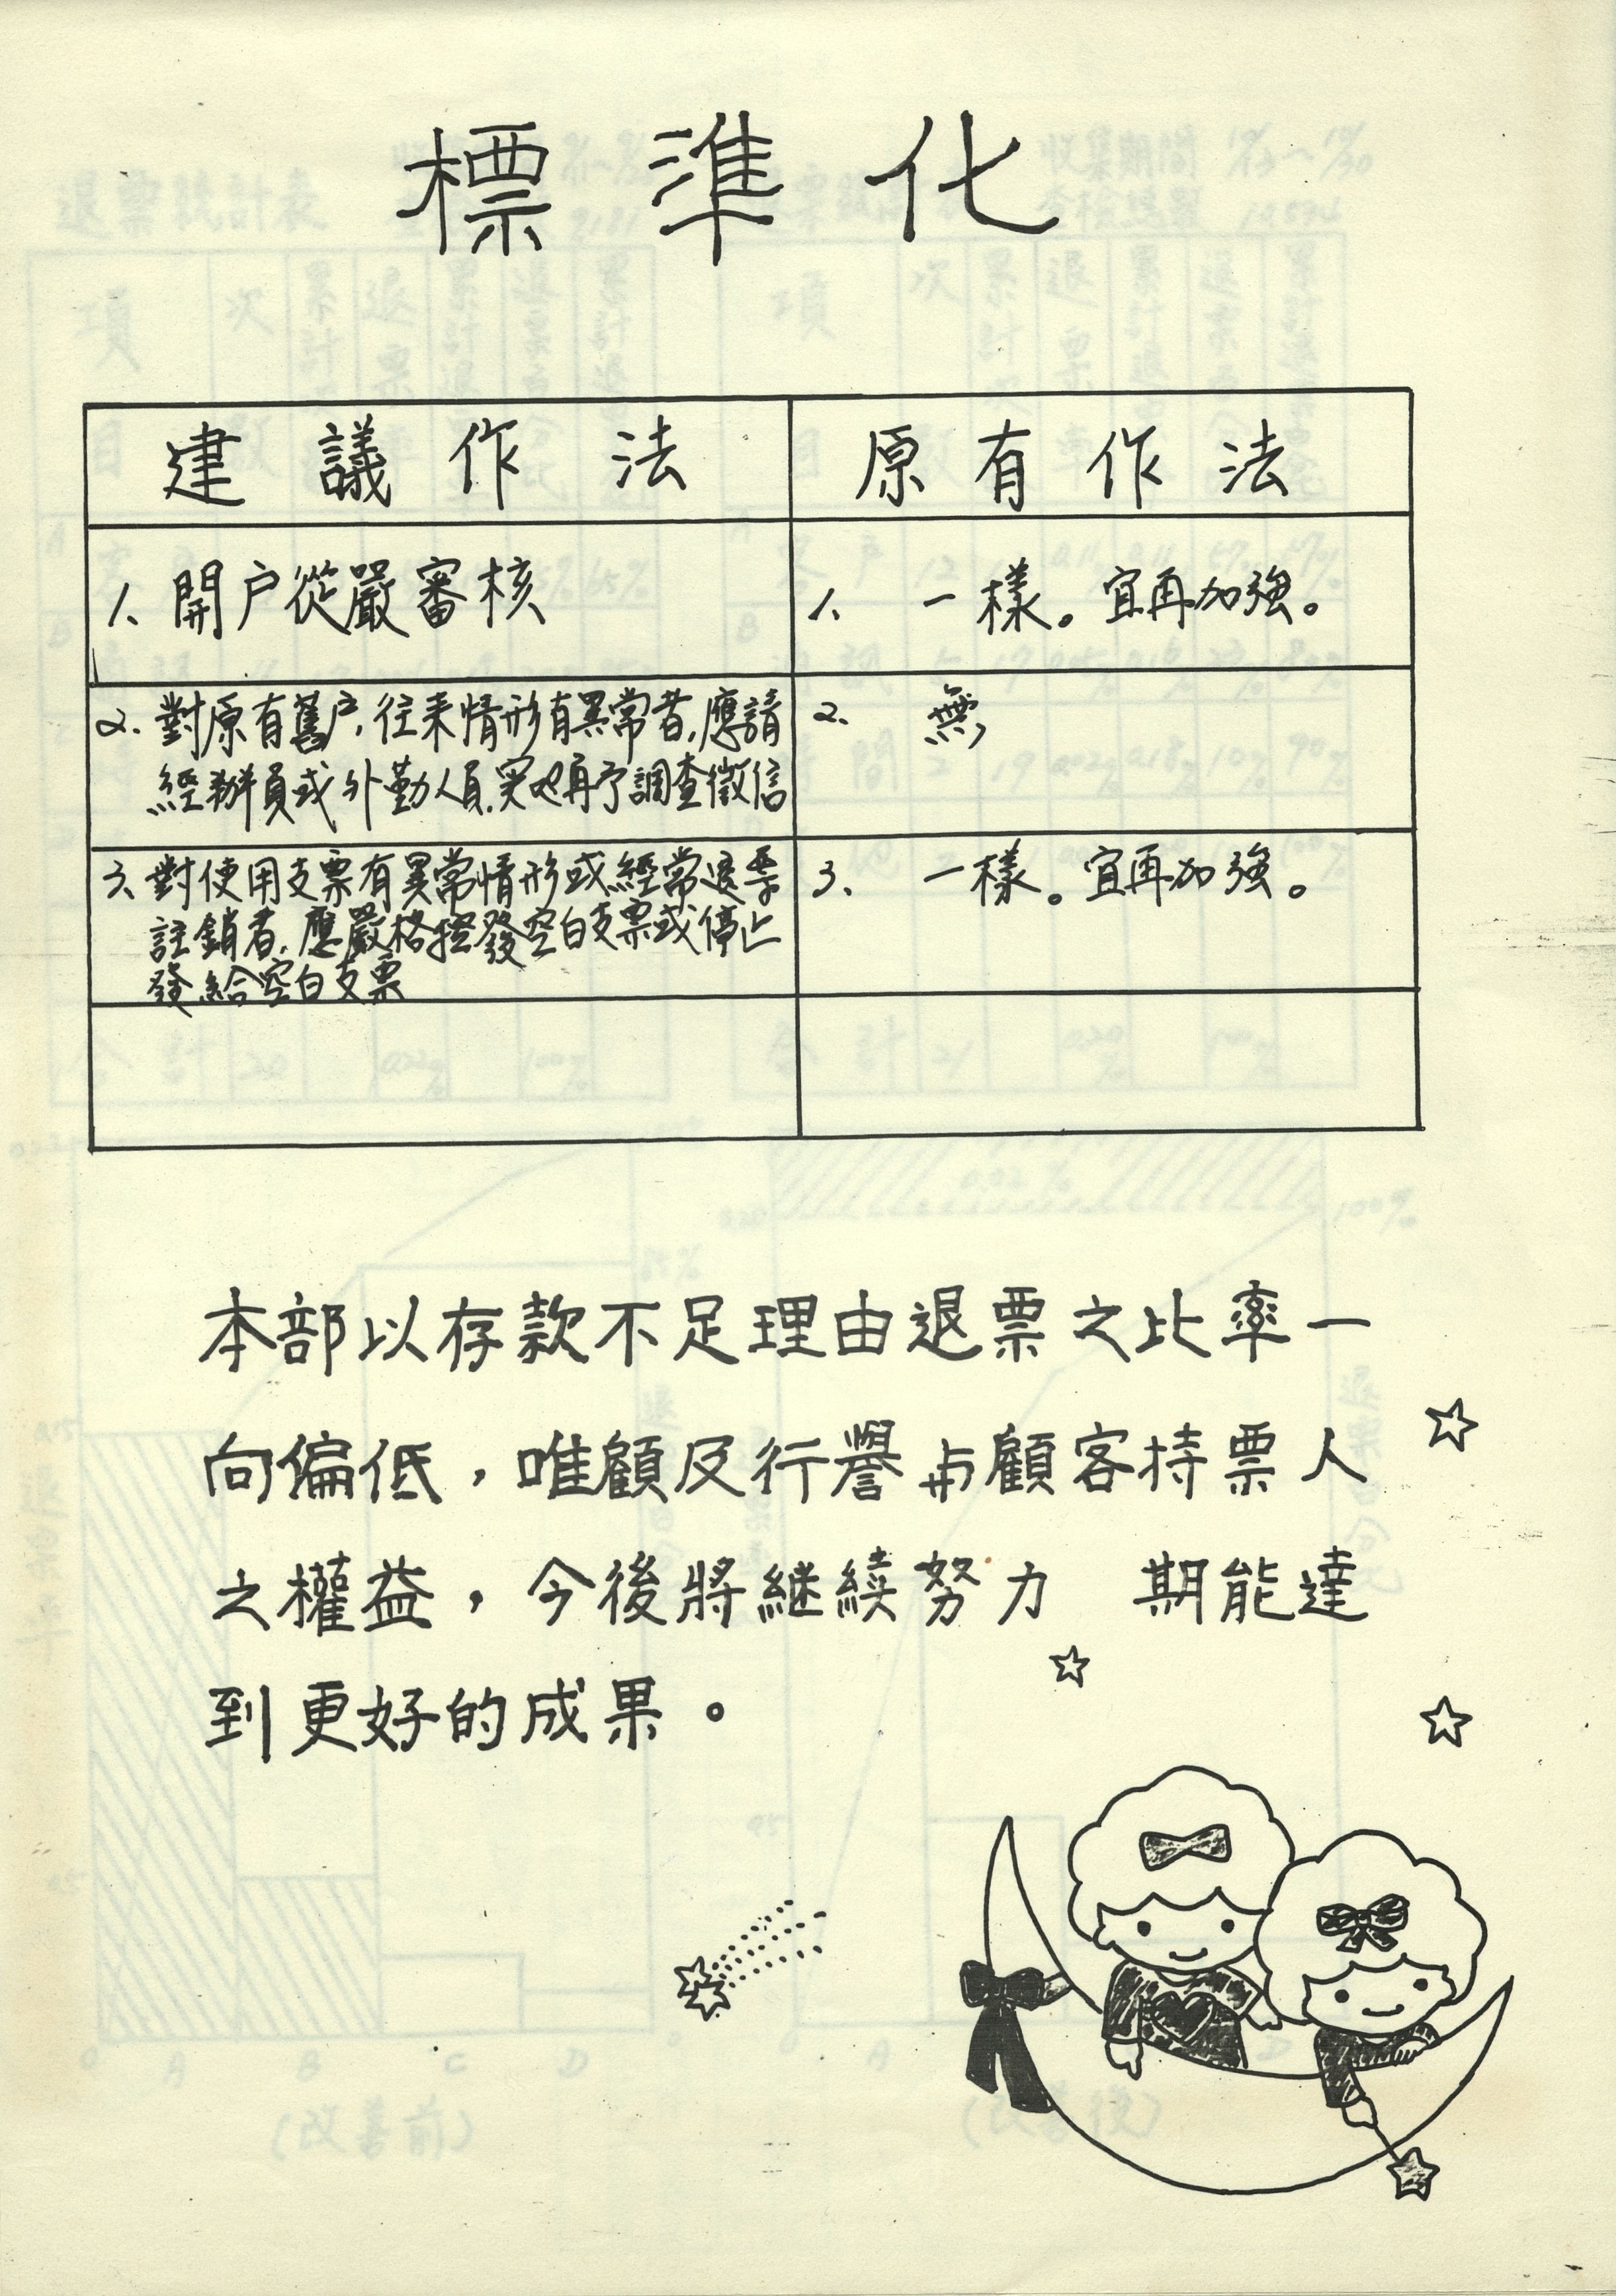 標準化
建議作法 原有作法
1. 開户從嚴審核
1. 一樣。宜再加強。
2. 對原有舊户,往来情形有異常者,應請
經辦員或外勤人員,実地再予調查徵信
2. 無
3. 對使用支票有異常情形或經常退票
註銷者,應嚴格控發空白支票或停止
發給空白支票
3. 一樣。宜再加強。
本部以存款不足理由退票之比率一
向偏低,唯顧及行譽与顧客持票人
之權益,今後將継續努力 期能達
到更好的成果。